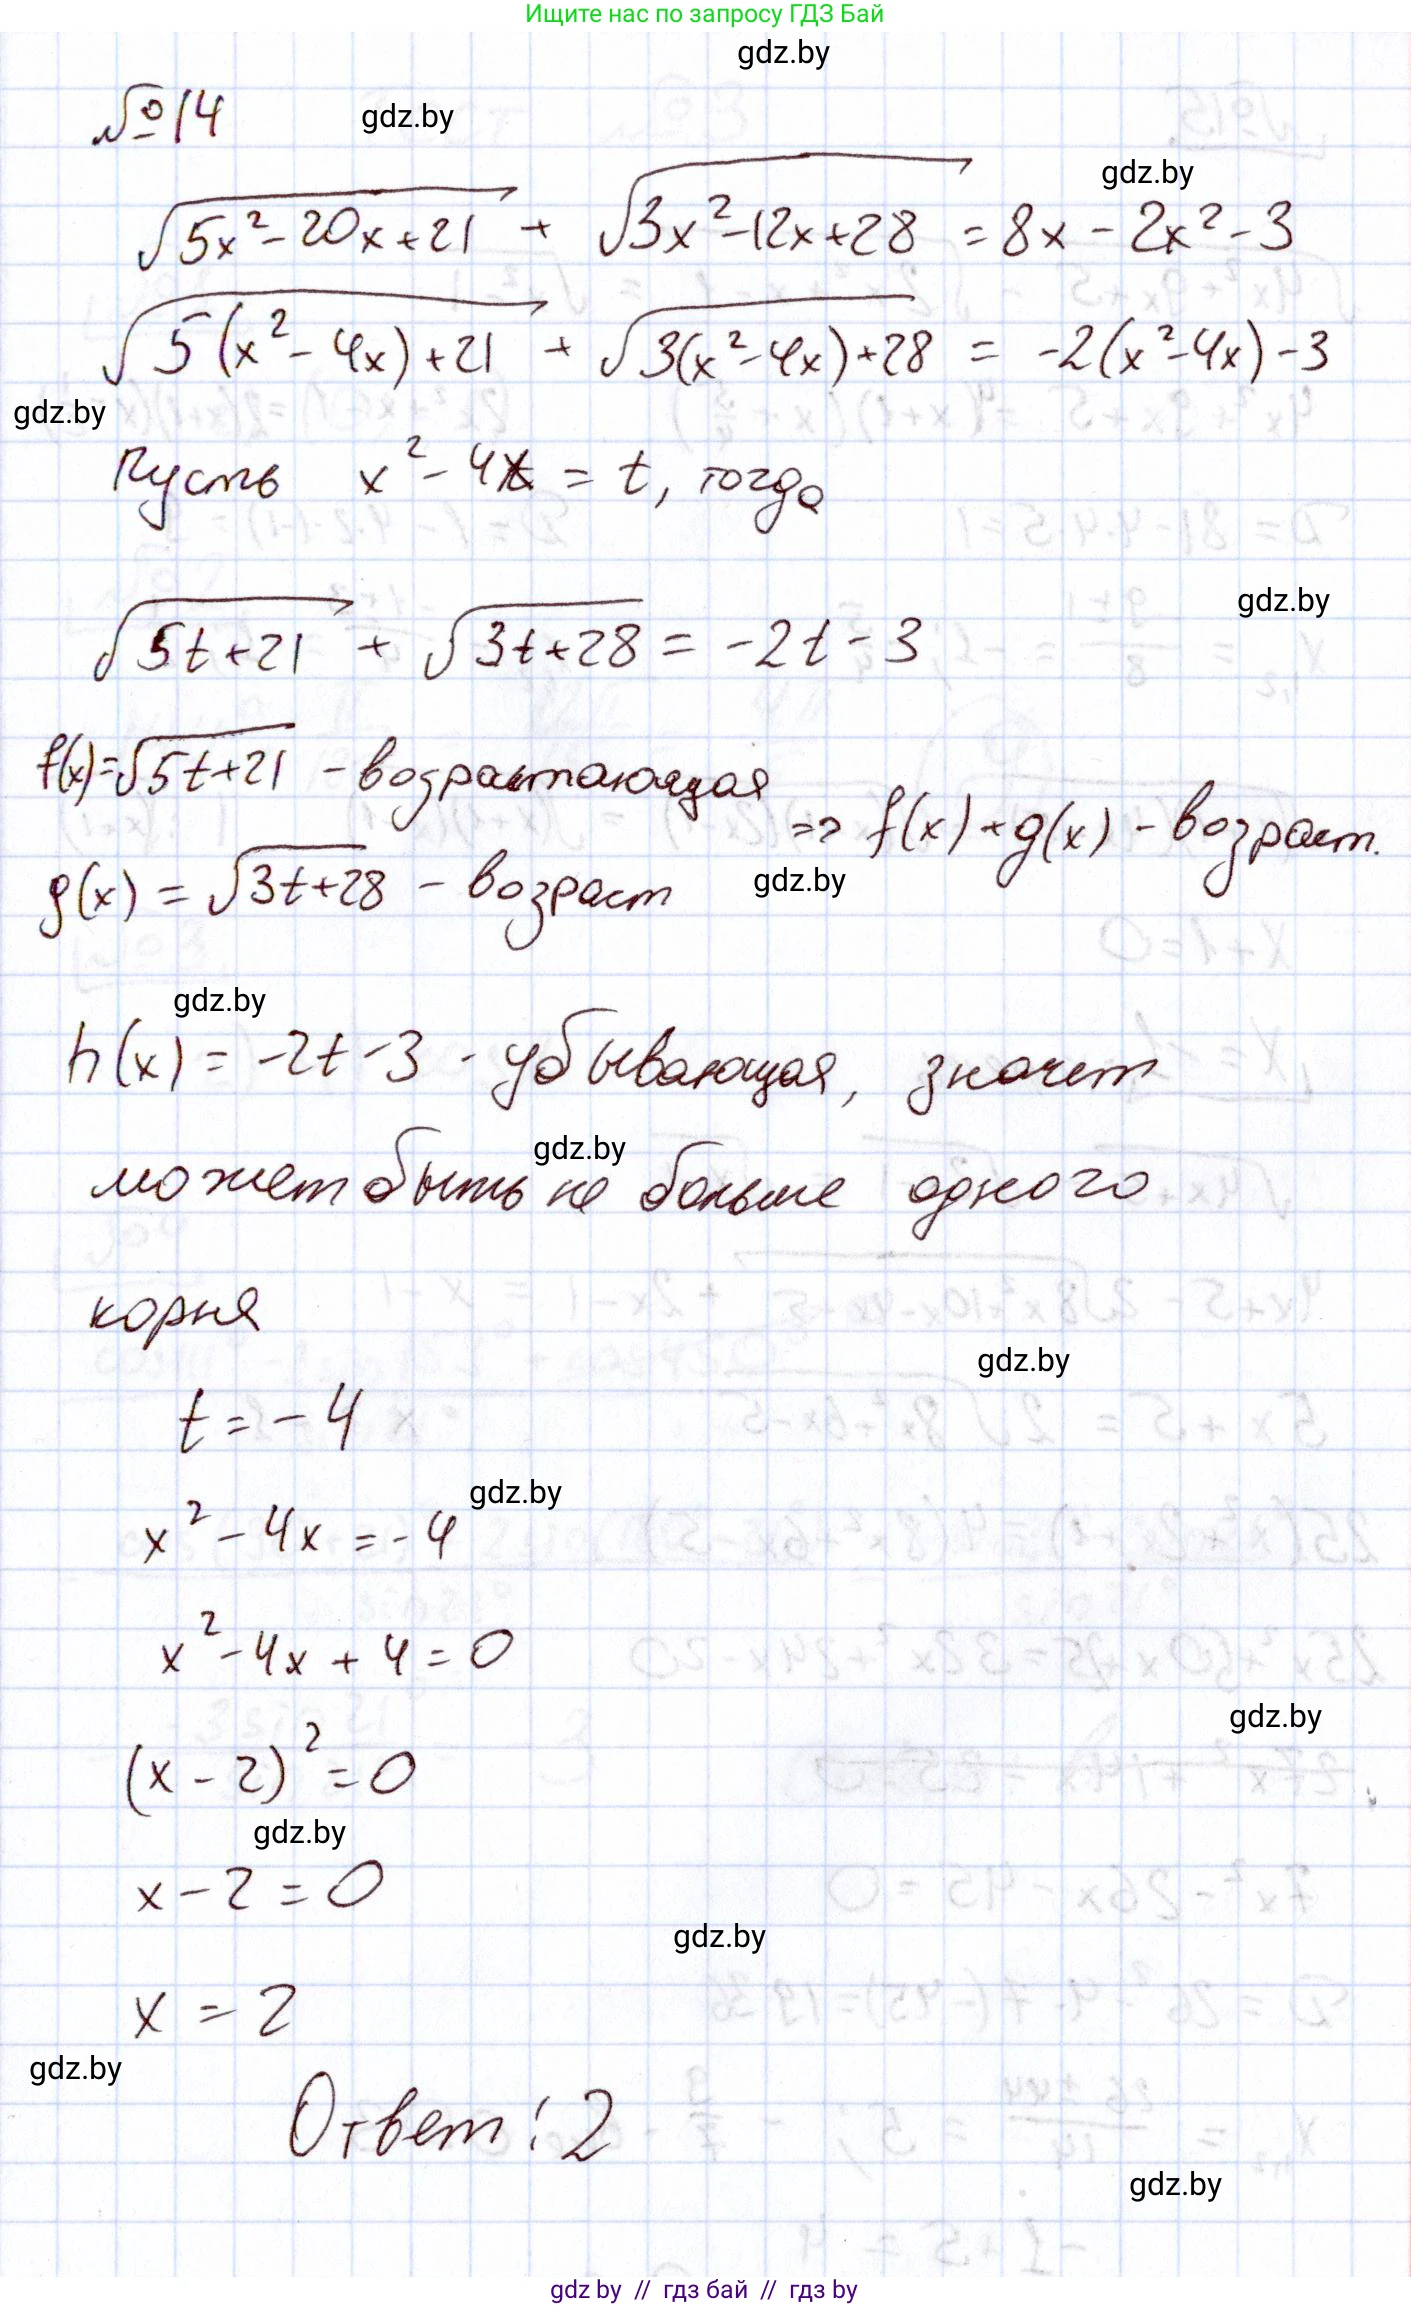 Ищите нас по запросу ГДЗ Бай
gdz.by
№14
gdz.by
gdz.by
√(5x² - 20x + 21) + √(3x² - 12x + 28) = 8x - 2x² - 3
√(5(x² - 4x) + 21) + √(3(x² - 4x) + 28) = -2(x² - 4x) - 3
gdz.by
Пусть x² - 4x = t, тогда
gdz.by
√(5t + 21) + √(3t + 28) = -2t - 3
f(x) = √(5t + 21) - возрастающая
=> f(x) + g(x) - возраст.
g(x) = √(3t + 28) - возраст
gdz.by
gdz.by
h(x) = -2t - 3 - убывающая, значет
gdz.by
может быть не больше одного
корня
gdz.by
t = -4
gdz.by
x² - 4x = -4
x² - 4x + 4 = 0
gdz.by
(x - 2)² = 0
gdz.by
x - 2 = 0
gdz.by
x = 2
gdz.by
Ответ: 2
gdz.by
gdz by // гдз бай // гдз by